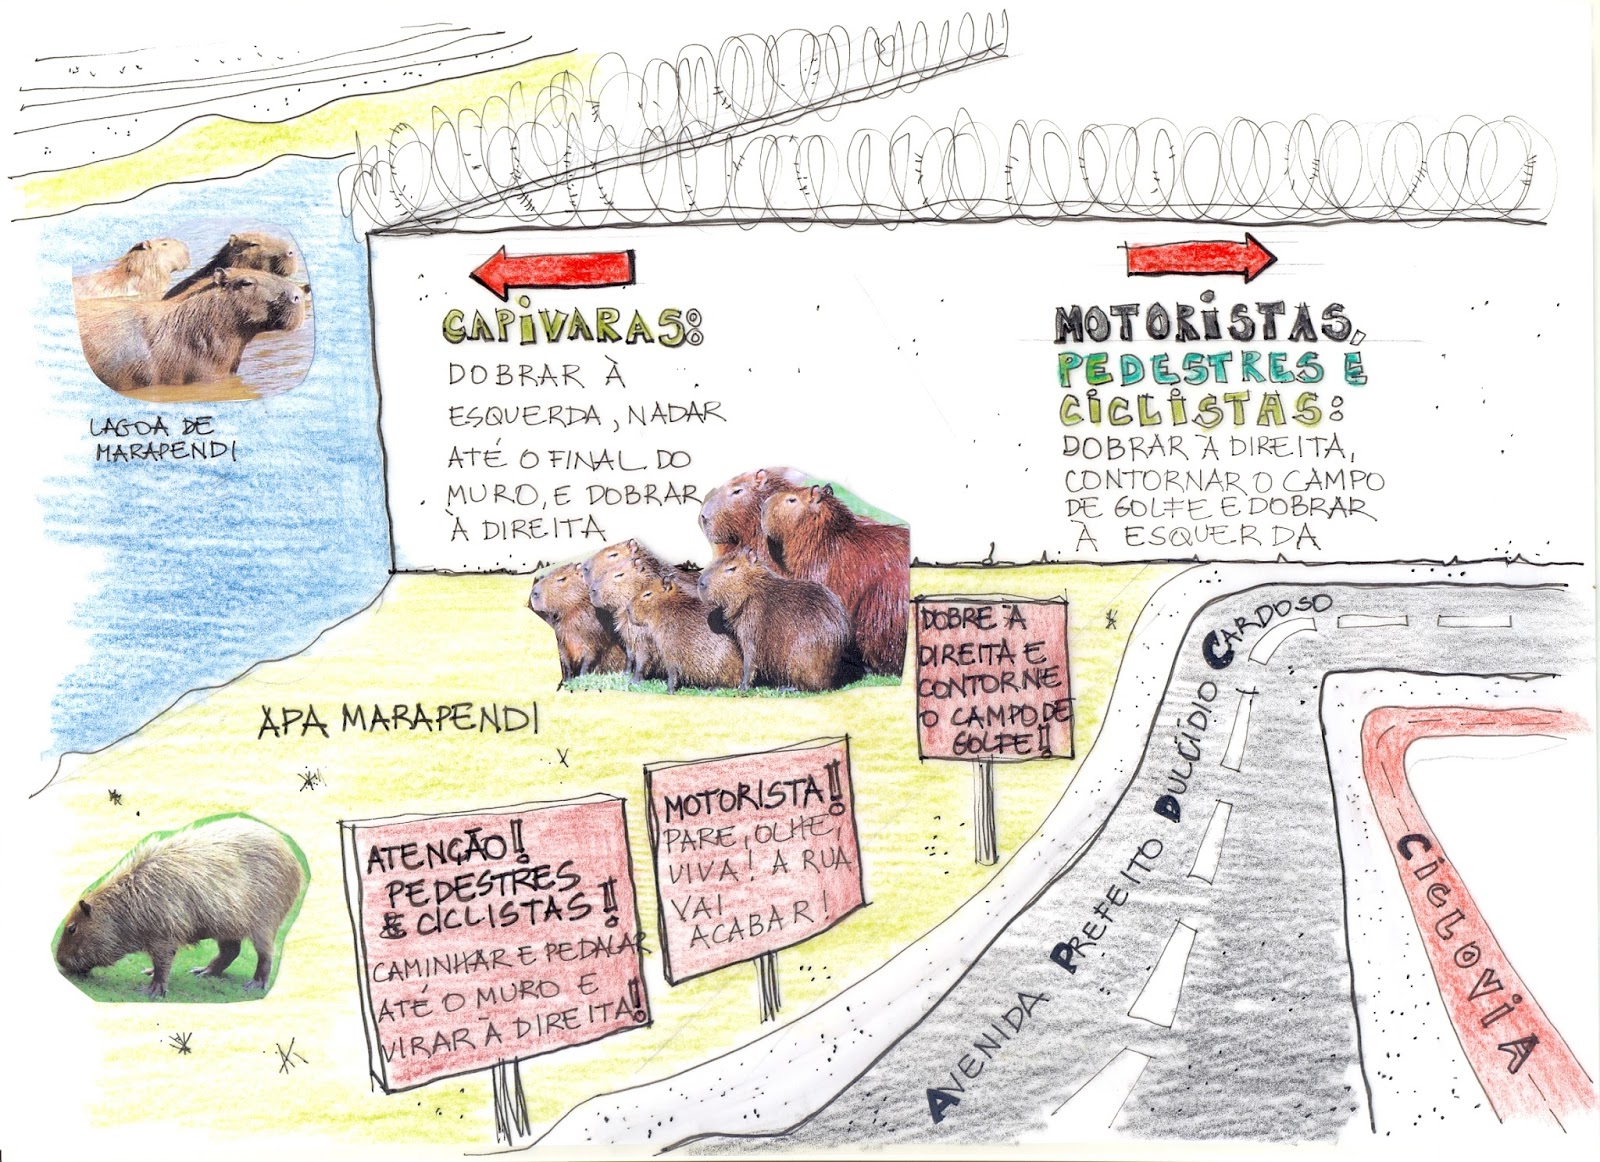 CAPIVARAS:
DOBRAR À
ESQUERDA, NADAR
ATÉ O FINAL DO
MURO, E DOBRAR
À DIREITA
MOTORISTAS,
PEDESTRES E
CICLISTAS:
DOBRAR À DIREITA,
CONTORNAR O CAMPO
DE GOLFE E DOBRAR
À ESQUERDA
LAGOA DE
MARAPENDI
APA MARAPENDI
DOBRE À
DIREITA E
CONTORNE
O CAMPO DE
GOLFE!!
MOTORISTA!!
PARE, OLHE,
VIVA! A RUA
VAI
ACABAR!
ATENÇÃO!
PEDESTRES
& CICLISTAS!!
CAMINHAR E PEDALAR
ATÉ O MURO E
VIRAR À DIREITA!
AVENIDA PREFEITO DULCÍDIO CARDOSO
CICLOVIA